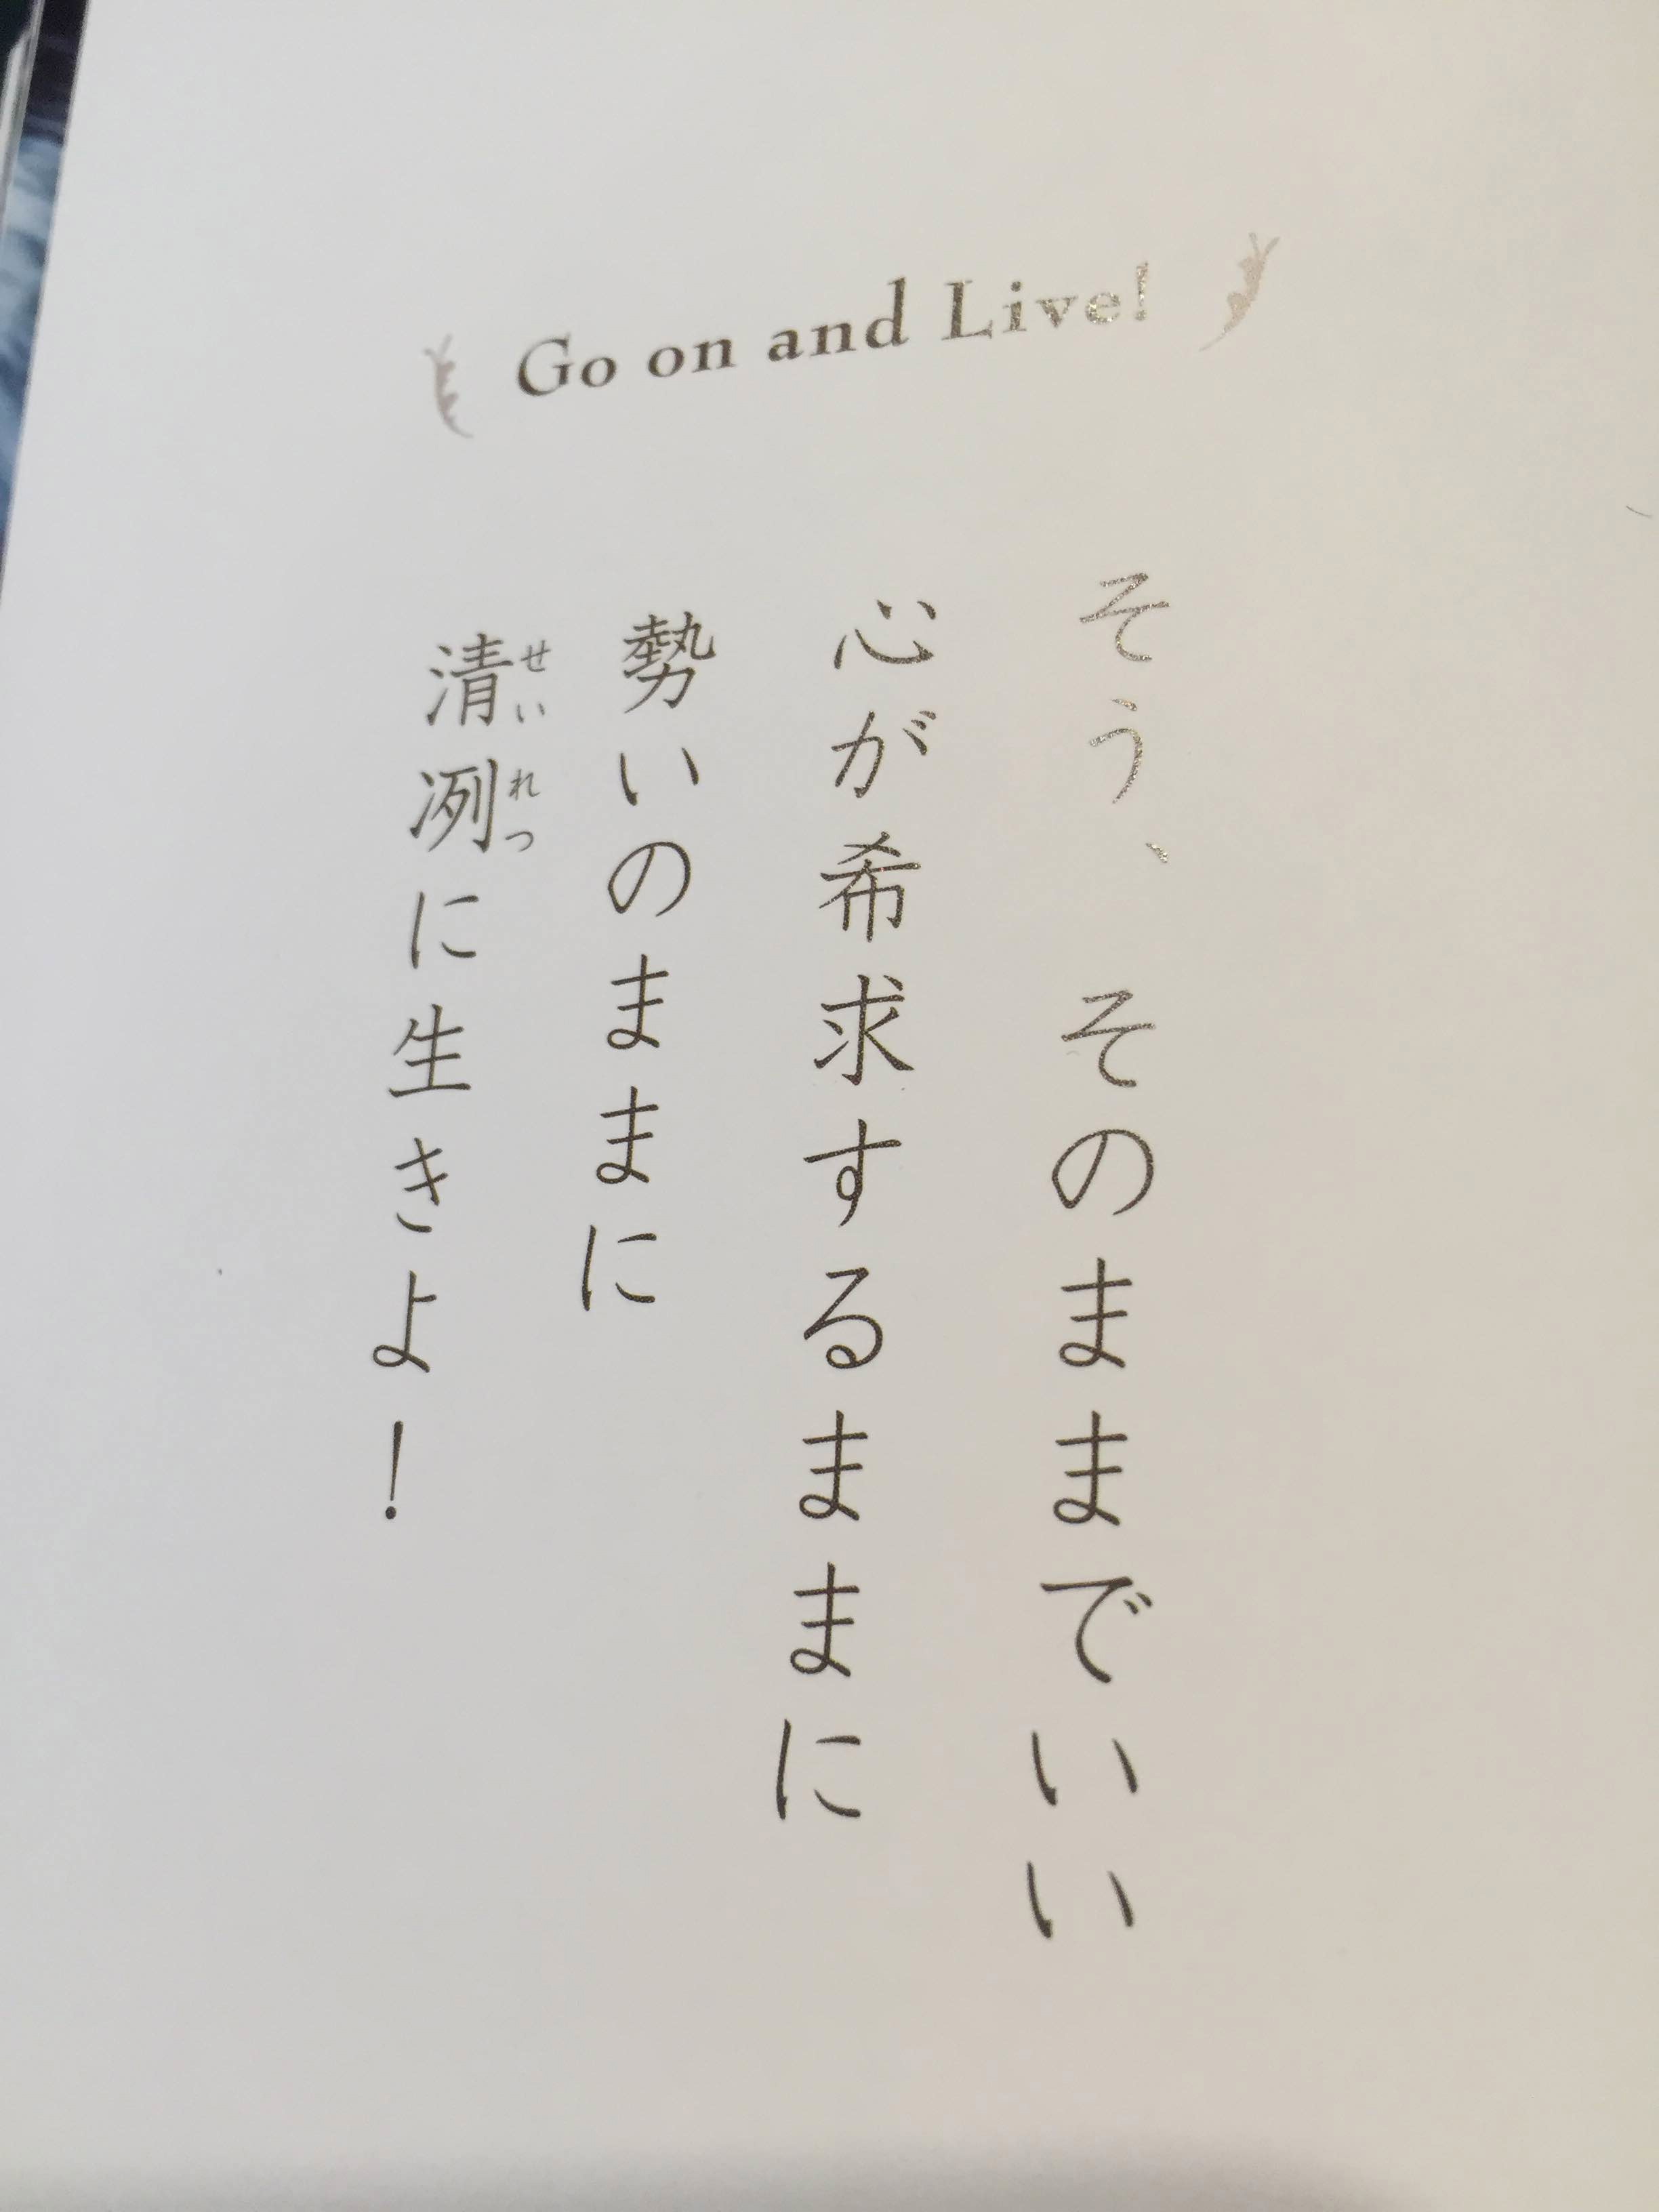 Go on and Live!
そう、そのままでいい
心が希求するままに
勢いのままに
清冽に生きよ！
せいれつ